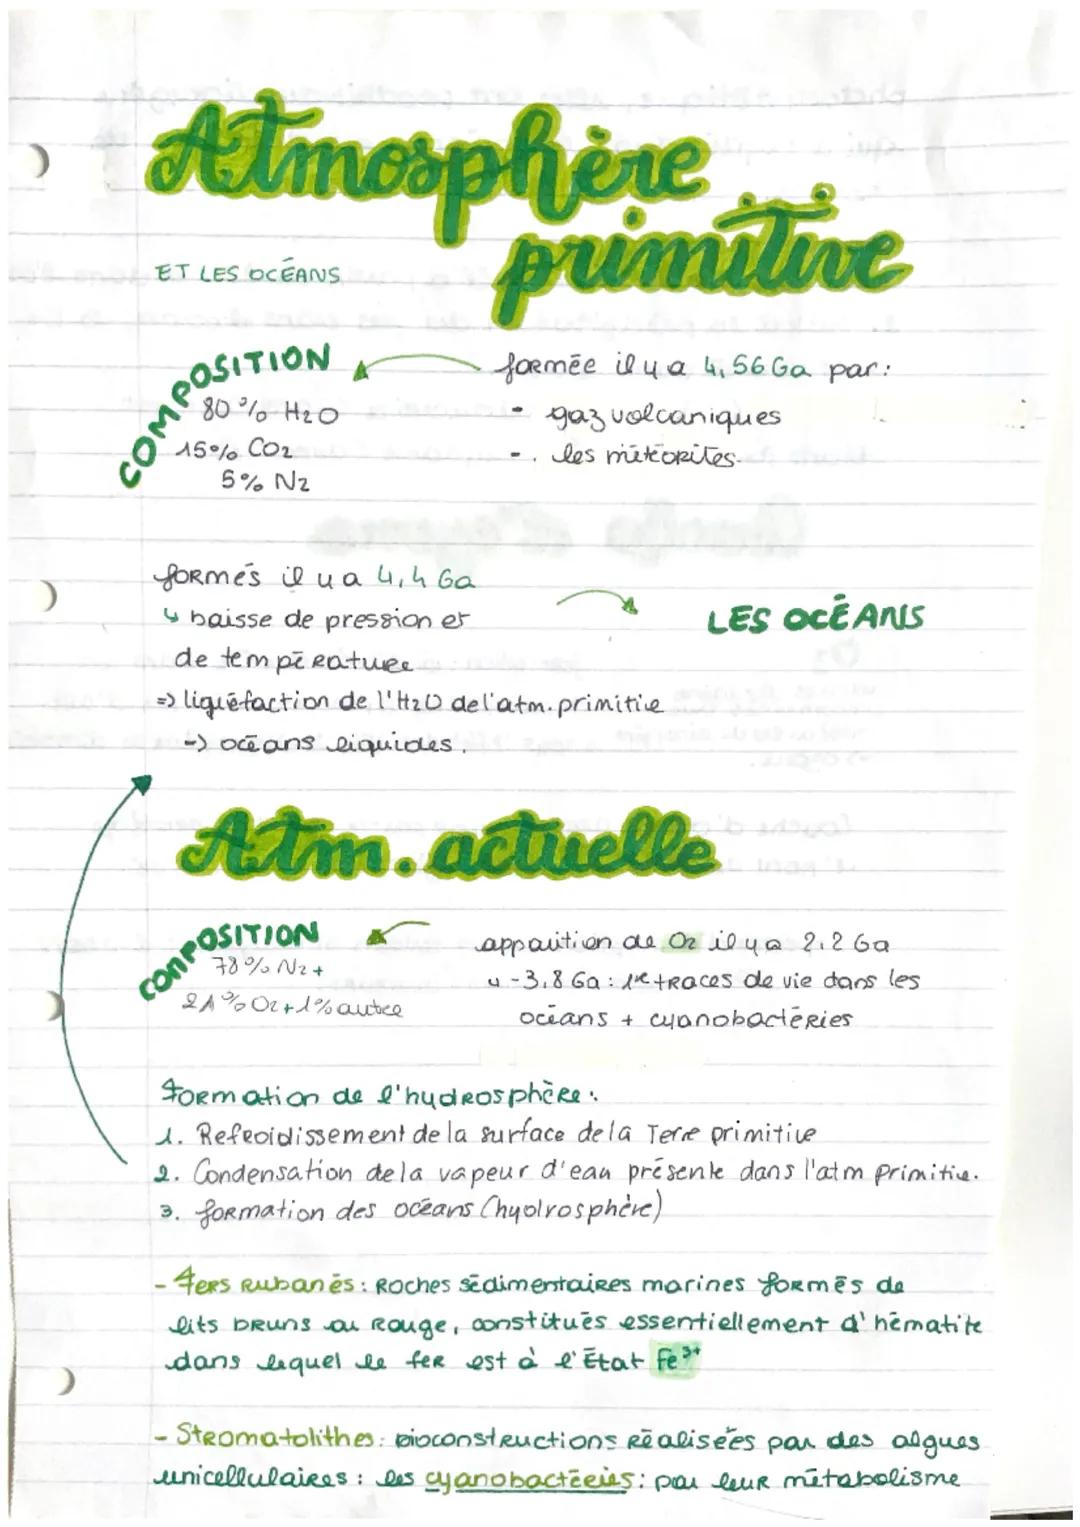 Atmosphère
primitive
ET LES OCÉANS
COMPOSITION
80% H2O
15% CO2
5% N2
formée il y a 4,56 Ga par:
- gaz volcaniques
- les météorites.
formés il y a 4,4 Ga
↳ baisse de pression et
de température
=> liquéfaction de l'H2O de l'atm. primitive
-> océans liquides.
LES OCÉANS
Atm. actuelle
COMPOSITION
78% N2 +
21% O2 + 1% autre
apparition de O2 il y a 2.2 Ga
↳ -3,8 Ga : 1re traces de vie dans les
océans + cyanobactéries
Formation de l'hydrosphère :
1. Refroidissement de la surface de la Terre primitive
2. Condensation de la vapeur d'eau présente dans l'atm primitive.
3. formation des océans (hydrosphère)
- Fers Rubanés : Roches sédimentaires marines formés de
lits bruns ou Rouge, constitués essentiellement d'hématite
dans lequel le fer est à l'État Fe3+
- Stromatolithes : bioconstructions Réalisées par des algues
unicellulaires : les cyanobactéries : par leur métabolisme